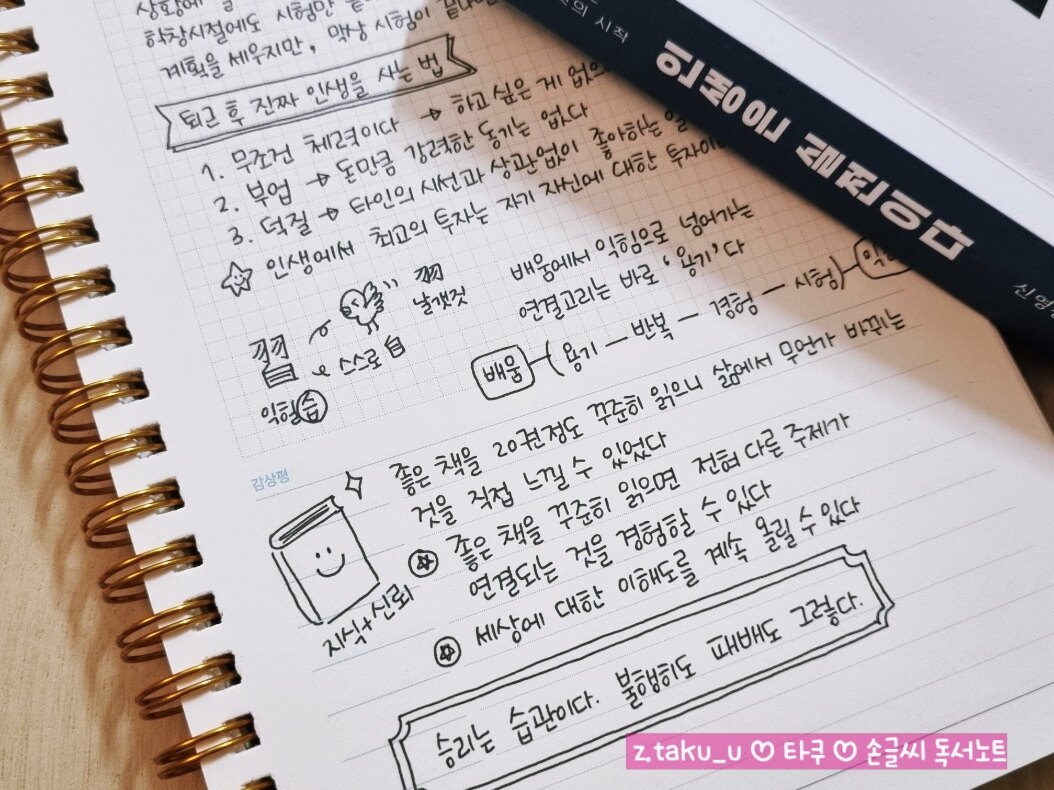 상황에
학창시절에도 시험만
계획을 세우지만, 막상 시험이 끝나면
퇴근 후 진짜 인생을 사는 법
1. 무조건 체력이다 → 하고 싶은 게 없으
2. 부업 → 돈만큼 강력한 동기는 없다
3. 덕질 → 타인의 시선과 상관없이 좋아하는 일
☆ 인생에서 최고의 투자는 자기 자신에 대한 투자이
깃깃
날갯짓
스스로 自
익힐 습
배움에서 익힘으로 넘어가는
연결고리는 바로 '용기'다
배움 — ( 용기 — 반복 — 경험 — 시험 ) — 익
감상평
좋은 책을 20권정도 꾸준히 읽으니 삶에서 무언가 바뀌는
것을 직접 느낄 수 있었다
좋은 책을 꾸준히 읽으면 전혀 다른 주제가
연결되는 것을 경험할 수 있다
세상에 대한 이해도를 계속 올릴 수 있다
지식+신뢰
승리는 습관이다. 불행히도 패배도 그렇다.
의 시작
인생은 실전이다
신영
z.taku_u ♡ 타쿠 ♡ 손글씨 독서노트